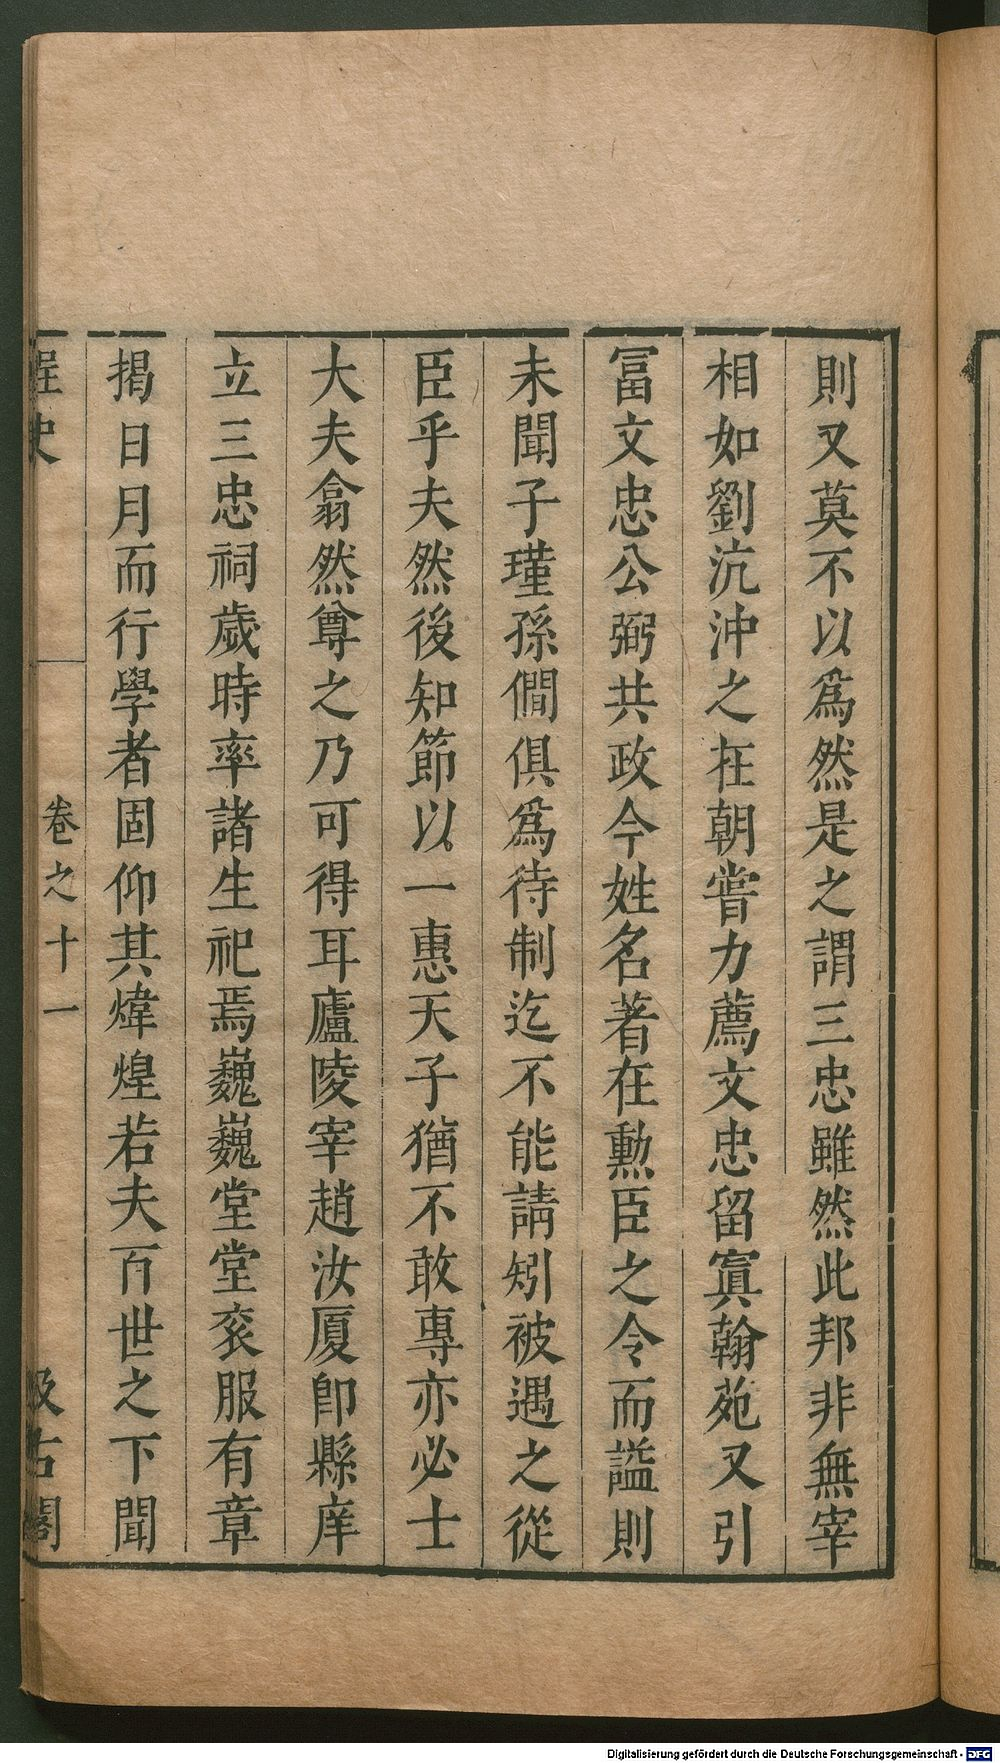 則又莫不以爲然是之謂三忠雖然此邦非無宰
相如劉沆沖之在朝嘗力薦文忠留寘翰苑又引
冨文忠公弼共政今姓名著在勲臣之令而謚則
未聞子瑾孫僩俱爲待制迄不能請矧被遇之從
臣乎夫然後知節以一惠天子猶不敢專亦必士
大夫翕然尊之乃可得耳廬陵宰趙汝厦卽縣庠
立三忠祠歲時率諸生祀焉巍巍堂堂衮服有章
揭日月而行學者固仰其煒煌若夫百世之下聞
桯史 卷之十一 汲古閣
Digitalisierung gefördert durch die Deutsche Forschungsgemeinschaft - DFG